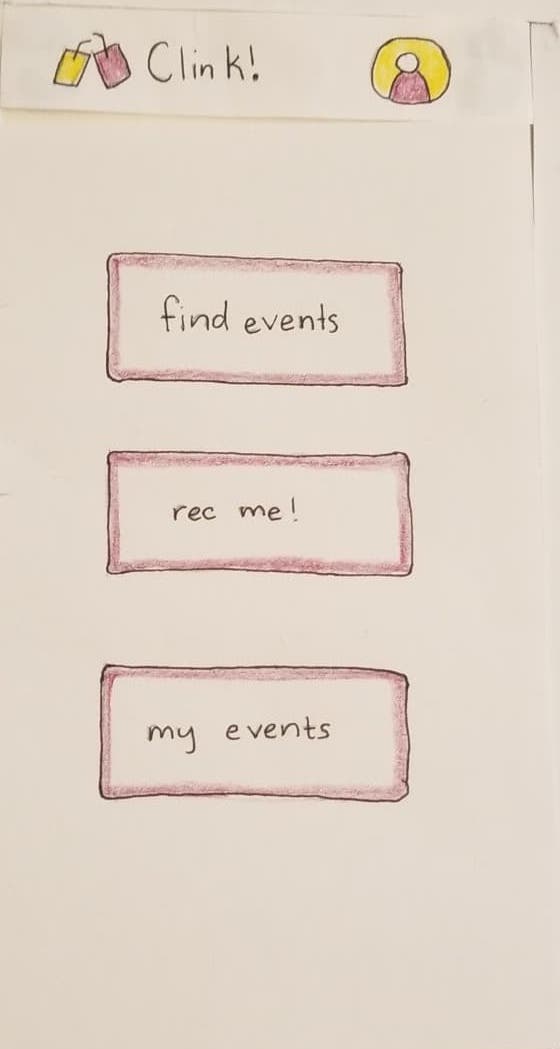 Clink!
find events
rec me!
my events